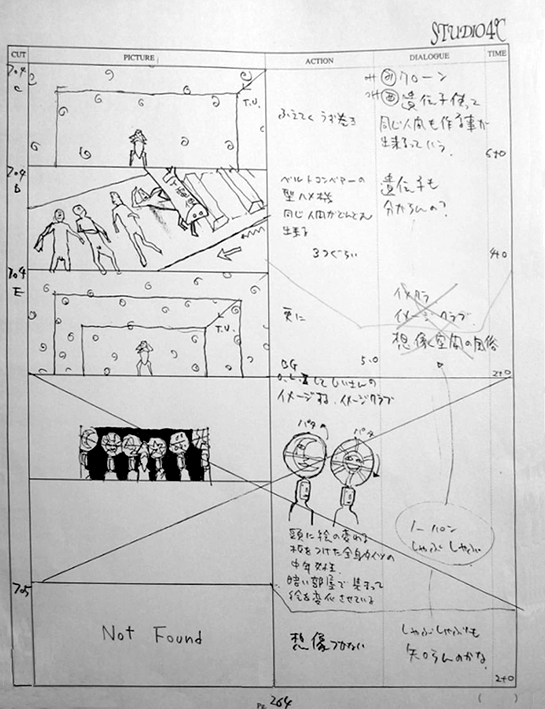 STUDIO4℃
CUT PICTURE ACTION DIALOGUE TIME
704
C
T.U.
ふえてく うず巻き
クローン
遺伝子使って
同じ人間も作る事が
出来るっていう
6+0
704
D
ベルトコンベアーの
同じ人間がどんどん
出来る
3つぐらい
遺伝子も
分からんの?
4+0
704
E
T.U.
更に
5.0
イメクラ
イメージクラブ
想像空間の風俗
2+0
BG
イメージね、イメージクラブ
パタ
パタ
頭に絵の変わる
板をつけた全身タイツの
中年好き
暗い部屋で集まって
絵を変化させている
ノーパン
しゃぶしゃぶ
705
Not Found
想像つかない
しゃぶしゃぶも
知らんのかな
2+0
PG. 264
( )